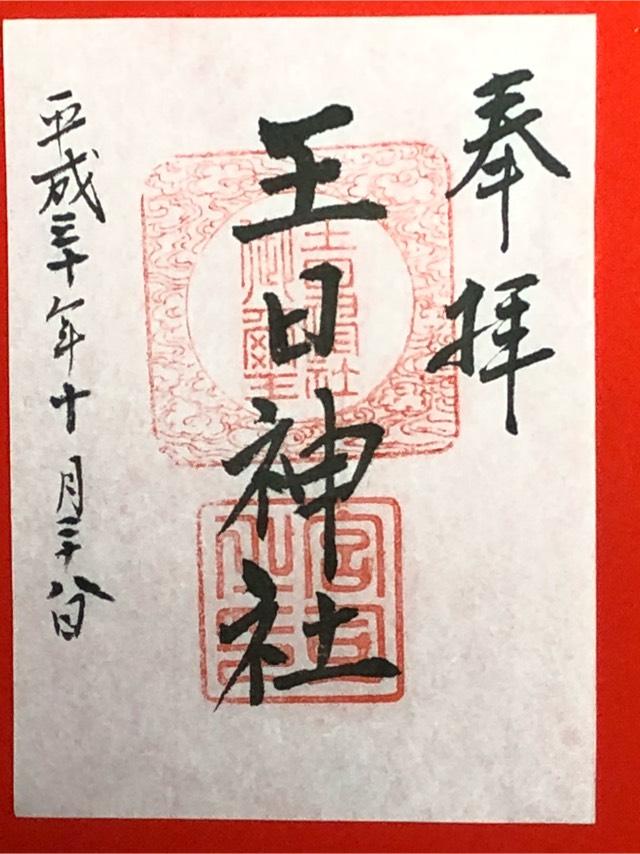 奉拝
王日神社
平成三十年十月二十八日